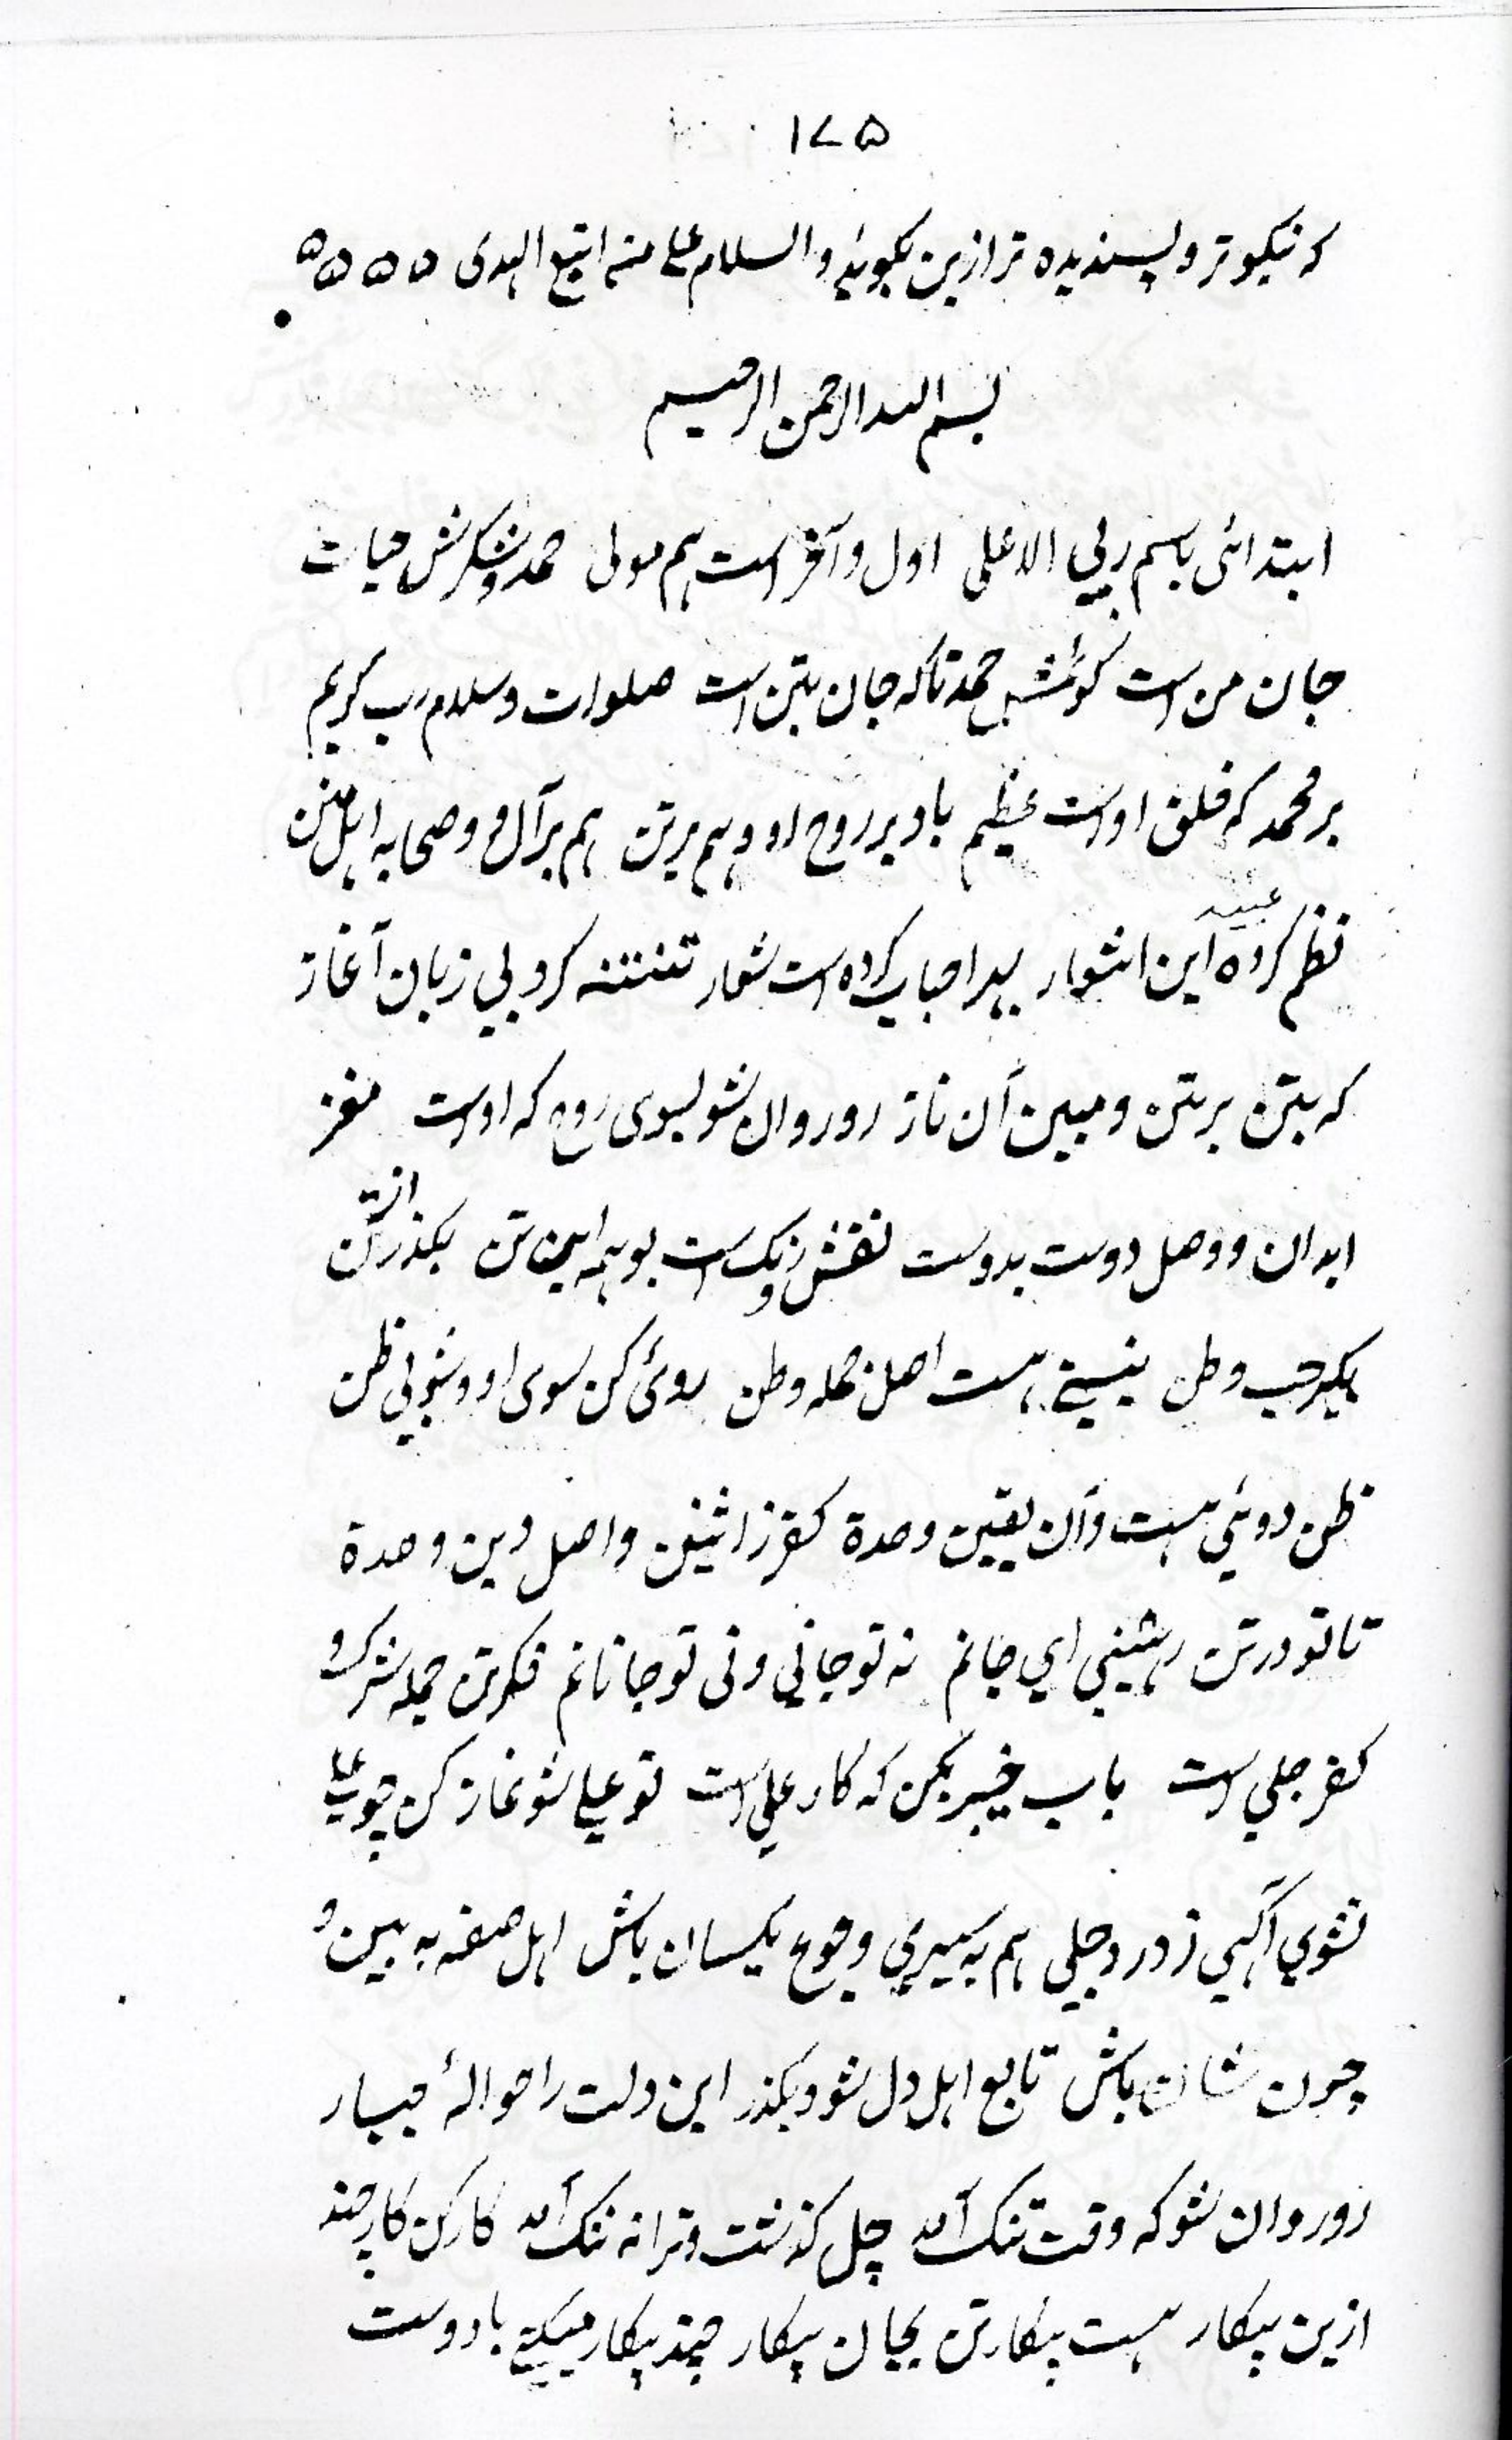 ۱۷۵
که نیکوتر و پسندیده تر ازین بگوید والسلام علی من اتبع الهدی ۵۵۵۵
بسم الله الرحمن الرحیم
ابتدائی باسم ربی الاعلی اول و آخر است هم مولی حمد و شکرش حیات
جان من است گویمش حمد تا که جان بتن است صلوات و سلام رب کریم
بر محمد که خلق اوست عظیم باد بر روح او و هم بر تن هم بر آل و صحابه اهل
نظم کرده عبید این اشعار بهر احباب کرده است شعار تنتنه کرد بی زبان آغاز
که بتن بر متن و مبین آن ناز رو روان شو بسوی روح که اوست مغز
ابدان و وصل دوست بدوست نقش و رنگ است بو همه این تن بگذر از تن
بگیر حب وطن نیستی هست اصل جمله وطن روی کن سوی او و شو بی ظن
ظن دوئی هست و آن یقین وحدة کفر زاثنین و اصل دین وحدة
تا تو در تن نشینی ای جانم نه تو جانی و نی تو جانانم فکر تن جمله شرک و
کفر جلی است باب خیبر بکن که کار علی است تو علی شو نماز کن چو علی
نشوی آگهی ز درد جلی هم به سیری و جوع یکسان باش اهل صفه به بین و
چون شان باش تابع اهل دل شو و بگذر این دلت را حواله بسپار
رو روان شو که وقت تنک آمد چل گذشت و ترا نه ننک آمد کار کن کار چند
ازین پیکار هست پیکار تن بجان پیکار چند پیکار میکنی با دوست